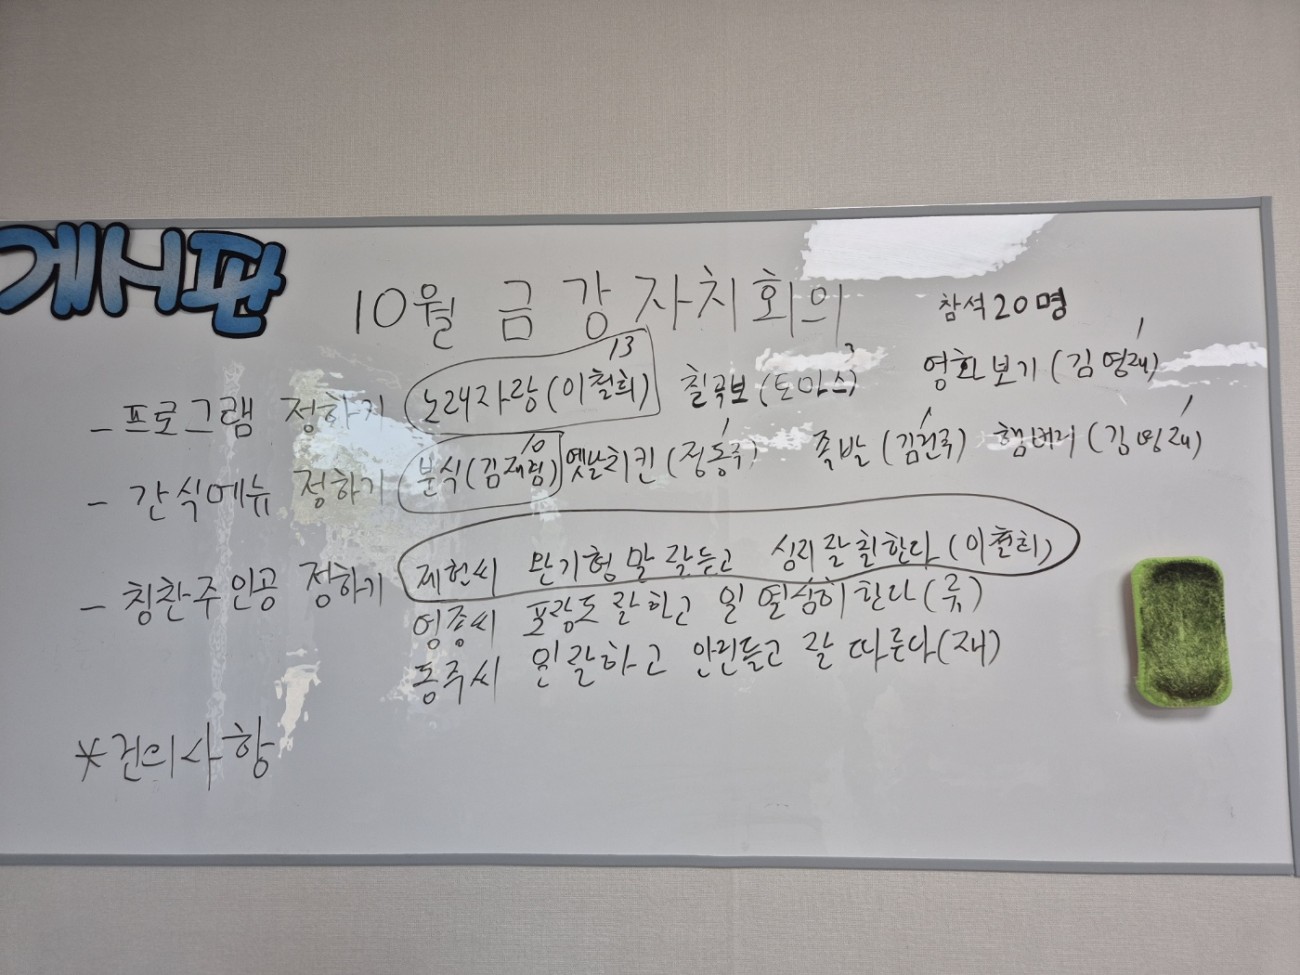 게시판
10월 금강자치회의 참석 20명
- 프로그램 정하기 노래자랑(이철희) 13 칠곡보(토마스) 3 영화보기(김영래) 1
- 간식메뉴 정하기 분식(김재형) 10 옛날치킨(정동주) 1 족발(김진주) 1 햄버거(김영래) 1
- 칭찬주인공 정하기 제헌씨 만기형 말 잘듣고 심리 잘 한다(이철희)
영종씨 포장도 잘하고 일 열심히 한다(류)
동주씨 일 잘하고 잘 따른다(재)
*건의사항